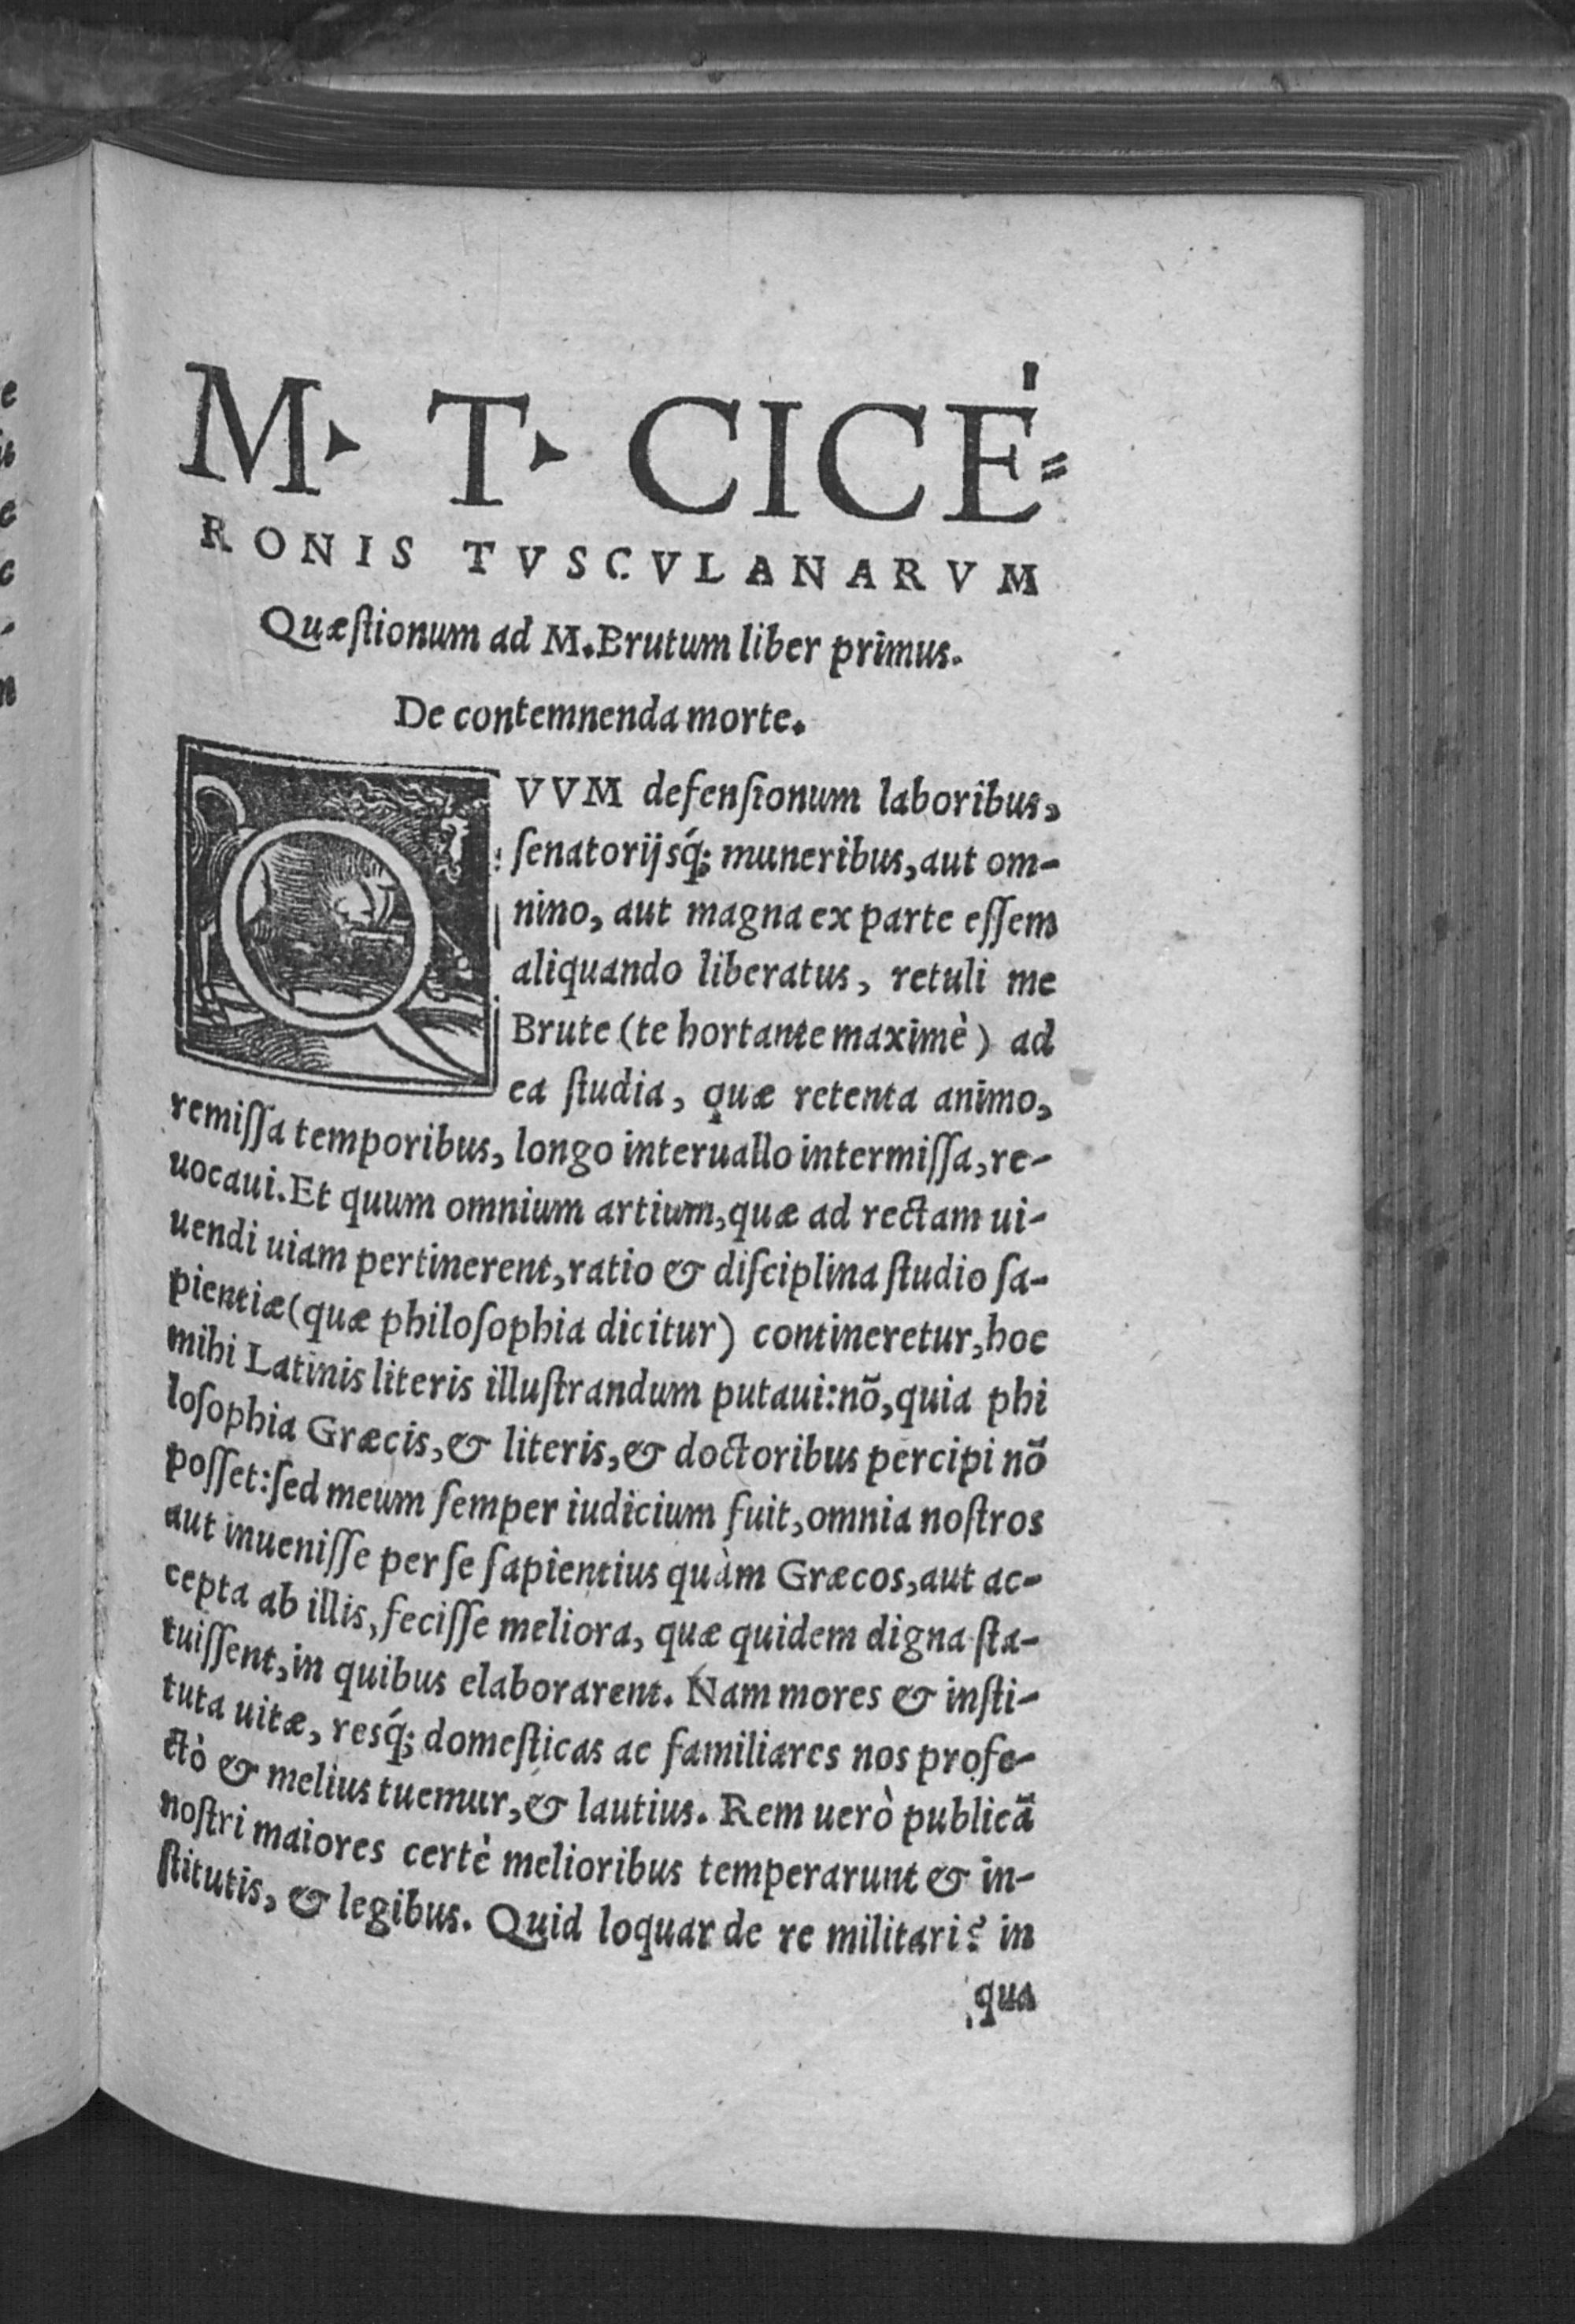 M. T. CICE=
RONIS TVSCVLANARVM
Quæſtionum ad M. Brutum liber primus.
De contemnenda morte.
QVVM defenſionum laboribus,
ſenatorijsq́; muneribus, aut om-
nino, aut magna ex parte eſſem
aliquando liberatus, retuli me
Brute (te hortante maximè) ad
ea ſtudia, quæ retenta animo,
remiſſa temporibus, longo interuallo intermiſſa, re-
uocaui. Et quum omnium artium, quæ ad rectam ui-
uendi uiam pertinerent, ratio & diſciplina ſtudio ſa-
pientiæ (quæ philoſophia dicitur) contineretur, hoc
mihi Latinis literis illuſtrandum putaui: nõ, quia phi
loſophia Græcis, & literis, & doctoribus percipi nõ
poſſet: ſed meum ſemper iudicium fuit, omnia noſtros
aut inueniſſe per ſe ſapientius quàm Græcos, aut ac-
cepta ab illis, feciſſe meliora, quæ quidem digna ſta-
tuiſſent, in quibus elaborarent. Nam mores & inſti-
tuta uitæ, resq́; domeſticas ac familiares nos profe-
ctò & melius tuemur, & lautius. Rem uerò publicã
noſtri maiores certè melioribus temperarunt & in-
ſtitutis, & legibus. Quid loquar de re militari? in
qua